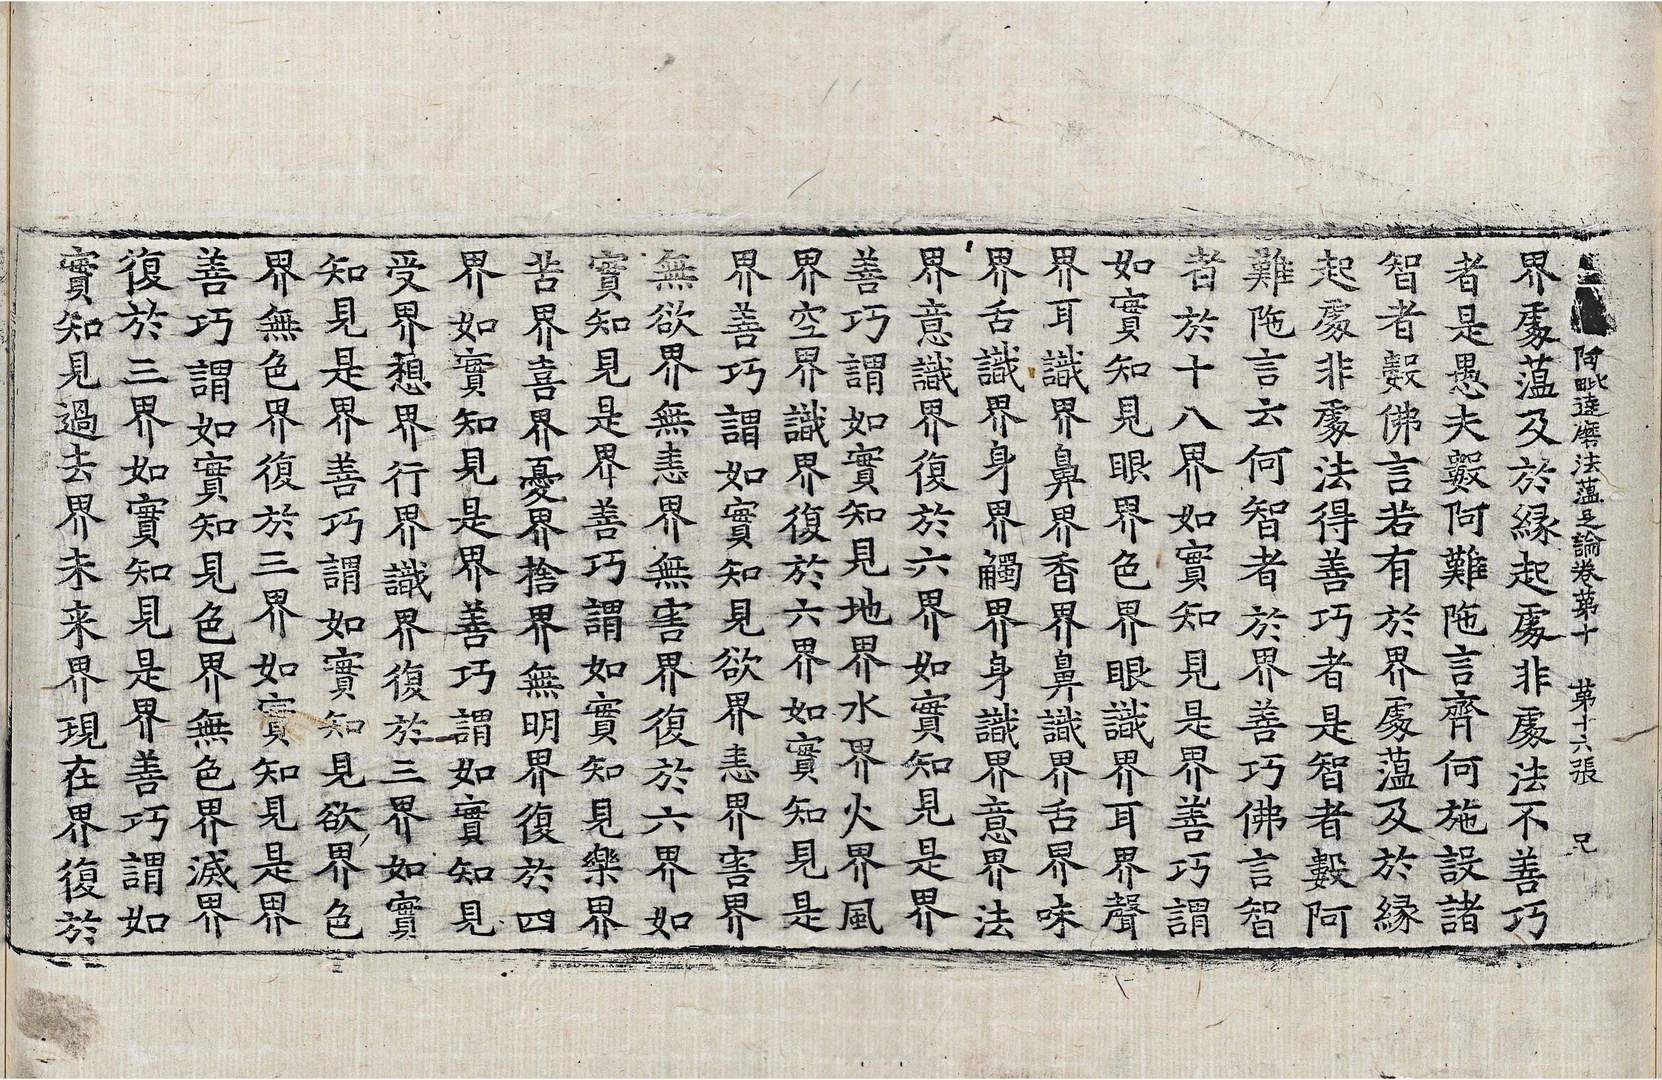 阿毗達磨法蘊足論卷第十　第十六張　兄
界處蘊及於緣起處非處法不善巧
者是愚夫數阿難陁言齊何施設諸
智者數佛言若有於界處蘊及於緣
起處非處法得善巧者是智者數阿
難陁言云何智者於界善巧佛言智
者於十八界如實知見是界善巧謂
如實知見眼界色界眼識界耳界聲
界耳識界鼻界香界鼻識界舌界味
界舌識界身界觸界身識界意界法
界意識界復於六界如實知見是界
善巧謂如實知見地界水界火界風
界空界識界復於六界如實知見是
界善巧謂如實知見欲界恚界害界
無欲界無恚界無害界復於六界如
實知見是界善巧謂如實知見樂界
苦界喜界憂界捨界無明界復於四
界如實知見是界善巧謂如實知見
受界想界行界識界復於三界如實
知見是界善巧謂如實知見欲界色
界無色界復於三界如實知見是界
善巧謂如實知見色界無色界滅界
復於三界如實知見是界善巧謂如
實知見過去界未來界現在界復於